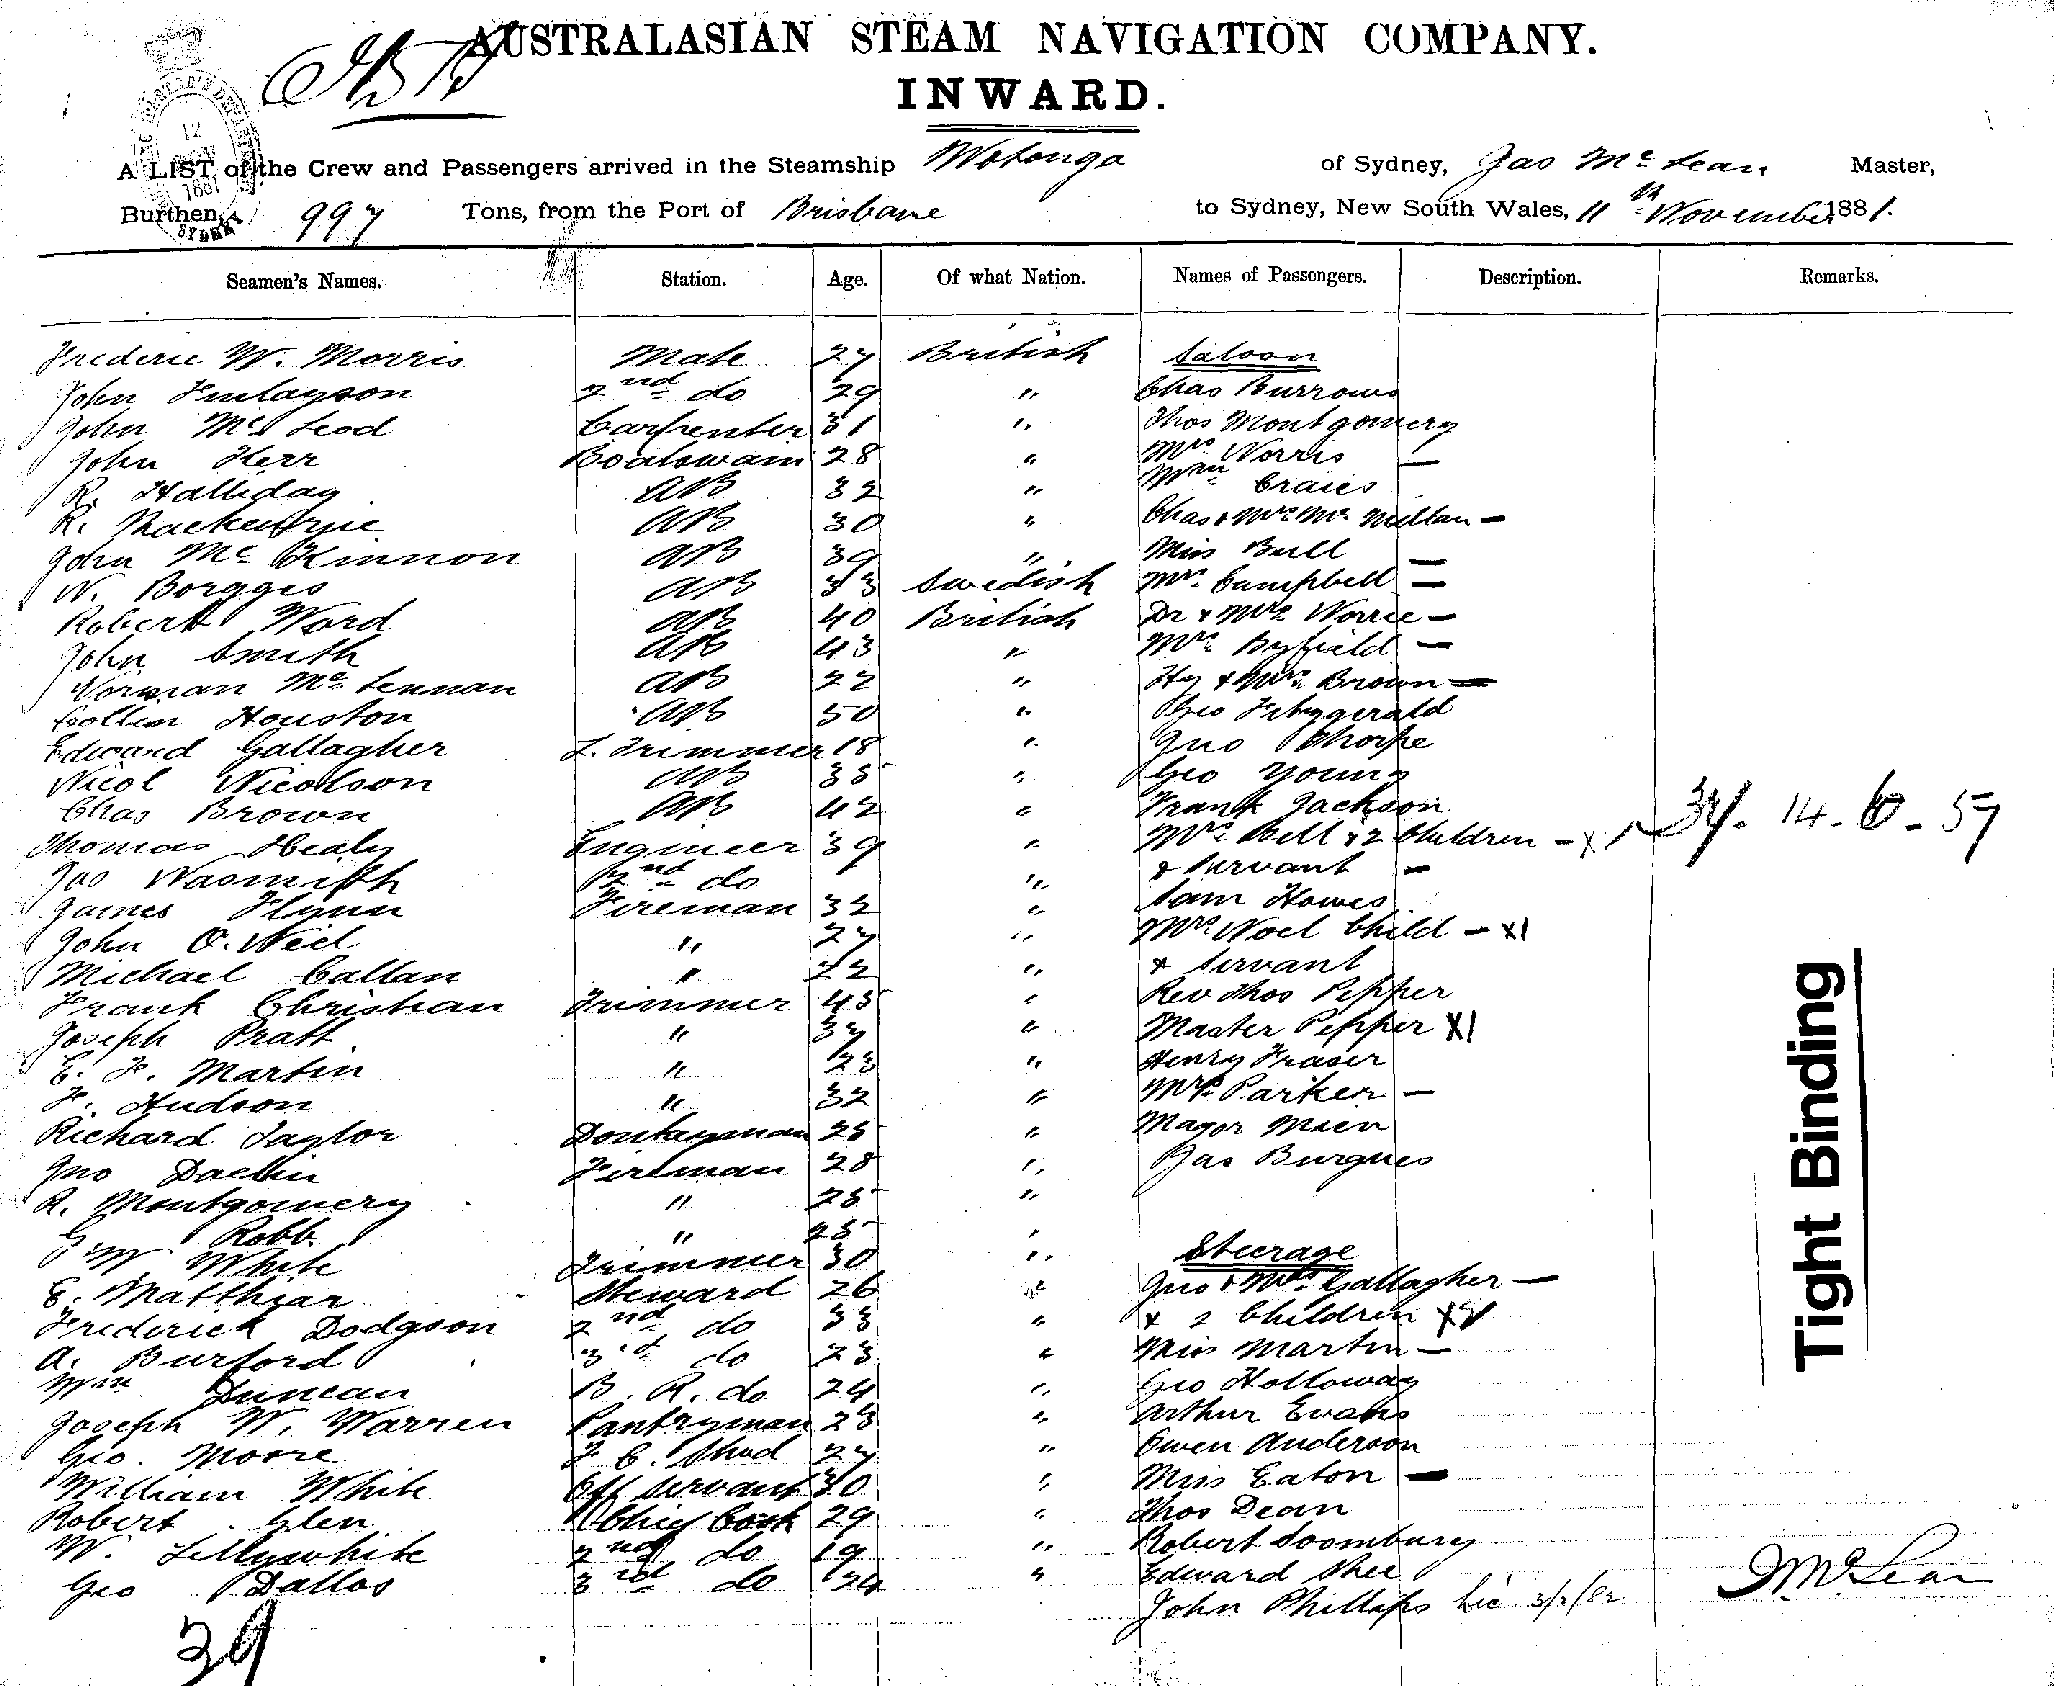 AUSTRALASIAN STEAM NAVIGATION COMPANY.
INWARD.
A LIST of the Crew and Passengers arrived in the Steamship Wotonga of Sydney, Jas McLean Master,
Burthen, 997 Tons, from the Port of Brisbane to Sydney, New South Wales, 11th November 1881.
Seamen's Names. Station. Age. Of what Nation. Names of Passengers. Description. Remarks.
Frederic W. Morris Mate 27 British Saloon
John Finlayson 2nd do 29 " Chas Burrows
John McLeod Carpenter 31 " Thos Montgomery
John Herr Boatswain 28 " Mrs Norris —
R. Halliday AB 32 " Wm Craies
K. Mackenzie AB 30 " Chas & Mrs McMillan —
John McKinnon AB 39 " Miss Bull —
N. Borggis AB 33 Swedish Mrs Campbell —
Robert Ward AB 40 British Dr & Mrs Worrie —
John Smith AB 43 " Mrs Byfield —
Norman McLennan AB 22 " Hy & Mrs Brown —
Collin Houston AB 50 " Geo Fitzgerald
Edward Gallagher L. Trimmer 18 " Jno Thorpe
Nicol Nicolson AB 35 " Geo Young
Chas Brown AB 42 " Frank Jackson
Thomas Healy Engineer 39 " Mrs Bell & 2 Children — 14 . 6 . 59
Jas Nasmith 2nd do " & Servant —
James Flynn Fireman 32 " Sam Howes
John O.Neil " 27 " Mrs Noel Child — X1
Michael Callan " 22 " & Servant
Frank Christian Trimmer 45 " Rev Thos Pepper
Joseph Pratt " 37 " Master Pepper X1
E. F. Martin " 23 " Henry Fraser
F. Hudson " 32 " Mrs Parker —
Richard Taylor Donkeyman 25 " Major Mien
Jno Daelin Fireman 28 " Jas Burgues
R. Montgomery " 25 "
G Robb " 25 "
W White Trimmer 30 " Steerage
E. Matthias Steward 26 " Jno & Mrs Gallagher —
Frederick Dodgson 2nd do 33 " & 2 Children X2
A. Burford 3rd do 23 " Miss Martin —
Wm Duncan B. R. do 24 " Geo Holloway
Joseph W. Warren Pantryman 23 " Arthur Evans
Geo. Moore F C. Stwd 27 " Owen Anderson
William White Off Servant 30 " Miss Eaton —
Robert Glen Chief Cook 29 " Thos Dean
W. Lillywhite 2nd do 19 " Robert Soombury
Geo Dallas 3rd do 24 " Edward Shee
John Phillips
J McLean
39
Tight Binding